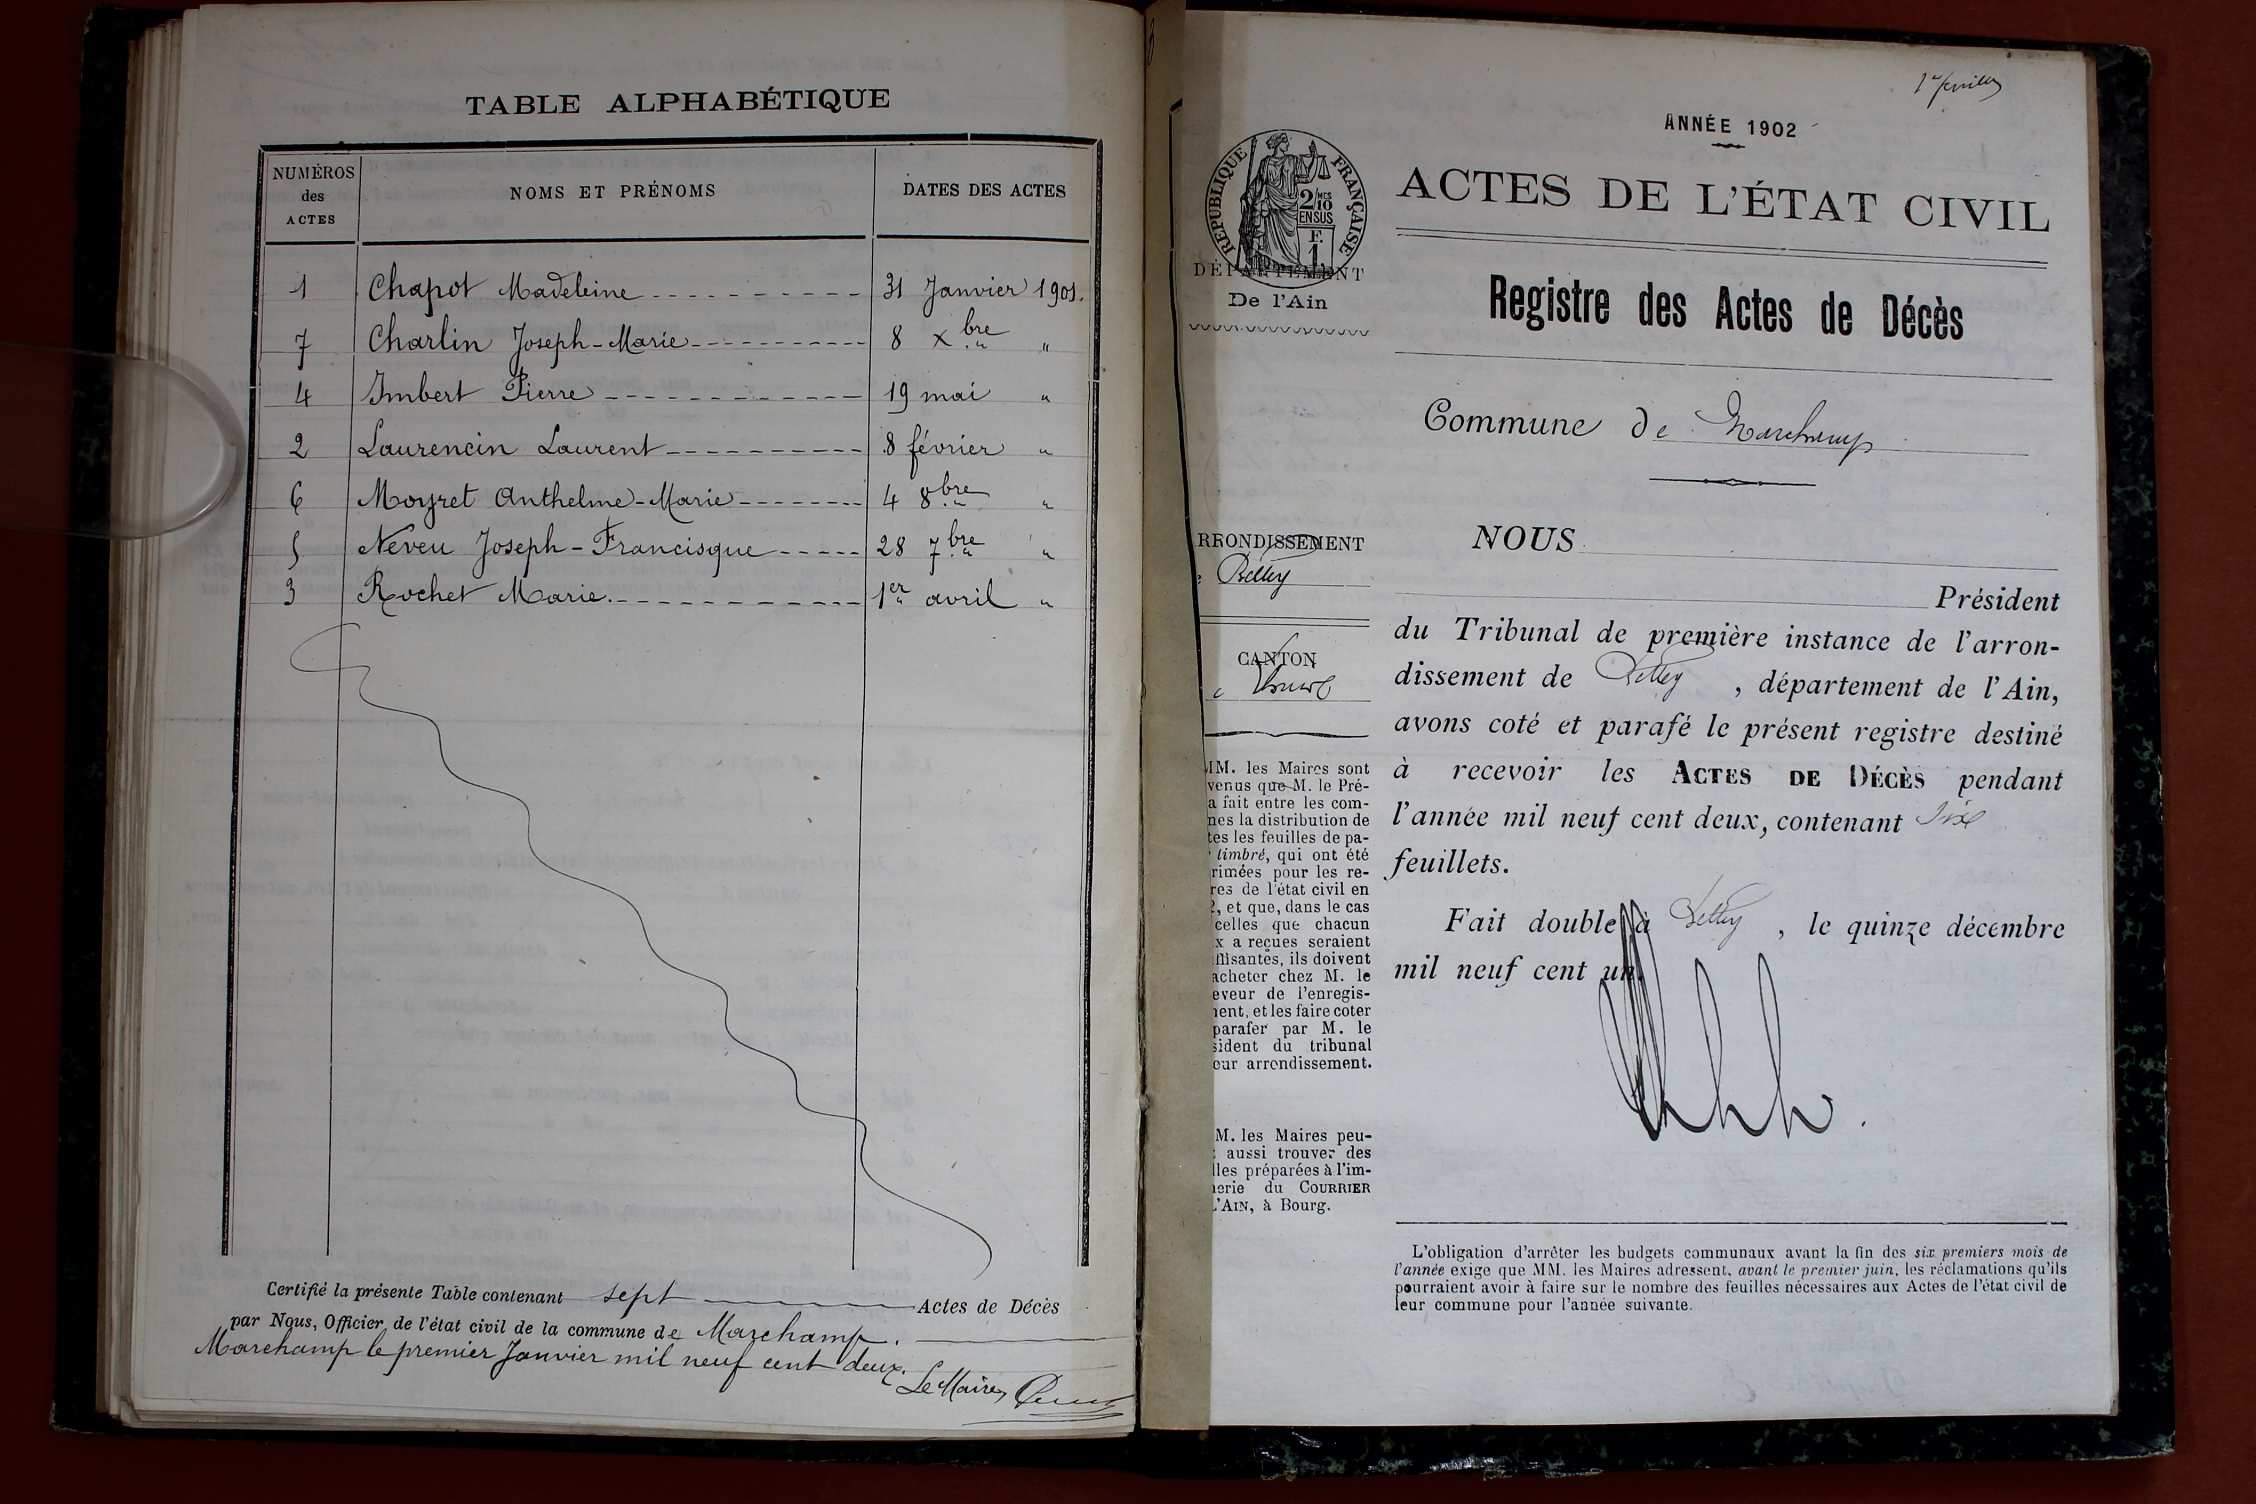 TABLE ALPHABÉTIQUE
NUMÉROS des ACTES NOMS ET PRÉNOMS DATES DES ACTES
1 Chapot Madeleine 31 Janvier 1901.
7 Charlin Joseph-Marie 8 Xbre "
4 Imbert Pierre 19 mai "
2 Laurencin Laurent 8 février "
6 Moyret Anthelme-Marie 4 8bre "
5 Neveu Joseph-Francisque 28 7bre "
3 Rochet Marie. 1er avril "
Certifié la présente Table contenant sept Actes de Décès
par Nous, Officier de l'état civil de la commune de Marchamp.
Marchamp le premier Janvier mil neuf cent deux.
Le Maire,
1er feuillet
ANNÉE 1902
RÉPUBLIQUE FRANÇAISE
2/10 MES
EN SUS
F.
1
DÉPARTEMENT
De l'Ain
RRONDISSEMENT
Belley
CANTON
MM. les Maires sont
venus que M. le Pré-
a fait entre les com-
nes la distribution de
tes les feuilles de pa-
timbré, qui ont été
rimées pour les re-
res de l'état civil en
2, et que, dans le cas
celles que chacun
x a reçues seraient
ffisantes, ils doivent
acheter chez M. le
eveur de l'enregis-
ment, et les faire coter
parafer par M. le
sident du tribunal
eur arrondissement.
M. les Maires peu-
t aussi trouver des
lles préparées à l'im-
erie du COURRIER
L'AIN, à Bourg.
ACTES DE L'ÉTAT CIVIL
Registre des Actes de Décès
Commune de Marchamp
NOUS
Président
du Tribunal de première instance de l'arron-
dissement de Belley, département de l'Ain,
avons coté et parafé le présent registre destiné
à recevoir les ACTES DE DÉCÈS pendant
l'année mil neuf cent deux, contenant six
feuillets.
Fait double à Belley, le quinze décembre
mil neuf cent un.
L'obligation d'arrêter les budgets communaux avant la fin des six premiers mois de
l'année exige que MM. les Maires adressent, avant le premier juin, les réclamations qu'ils
pourraient avoir à faire sur le nombre des feuilles nécessaires aux Actes de l'état civil de
leur commune pour l'année suivante.